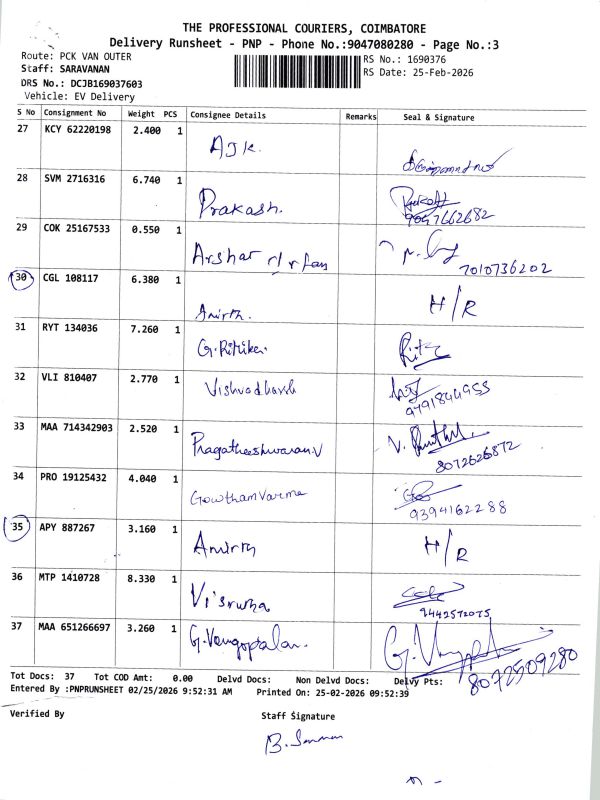 THE PROFESSIONAL COURIERS, COIMBATORE
Delivery Runsheet - PNP - Phone No.:9047080280 - Page No.:3
Route: PCK VAN OUTER
RS No.: 1690376
Staff: SARAVANAN
RS Date: 25-Feb-2026
DRS No.: DCJB169037603
Vehicle: EV Delivery
S No Consignment No Weight PCS Consignee Details Remarks Seal & Signature
27 KCY 62220198 2.400 1
28 SVM 2716316 6.740 1 Prakash.
9047662682
29 COK 25167533 0.550 1 Arshar
7010736202
30 CGL 108117 6.380 1 Anirth. H/R
31 RYT 134036 7.260 1 G.Rithika.
32 VLI 810407 2.770 1 Vishvadharsh
9791844955
33 MAA 714342903 2.520 1 Pragatheeshwaran.V
8072626872
34 PRO 19125432 4.040 1 Gowtham Varma
9394162288
35 APY 887267 3.160 1 Anirth H/R
36 MTP 1410728 8.330 1 Visrutha
9442572075
37 MAA 651266697 3.260 1 G.Venugopalan.
8072509280
Tot Docs: 37 Tot COD Amt: 0.00 Delvd Docs: Non Delvd Docs: Delvy Pts:
Entered By :PNPRUNSHEET 02/25/2026 9:52:31 AM Printed On: 25-02-2026 09:52:39
Verified By Staff Signature